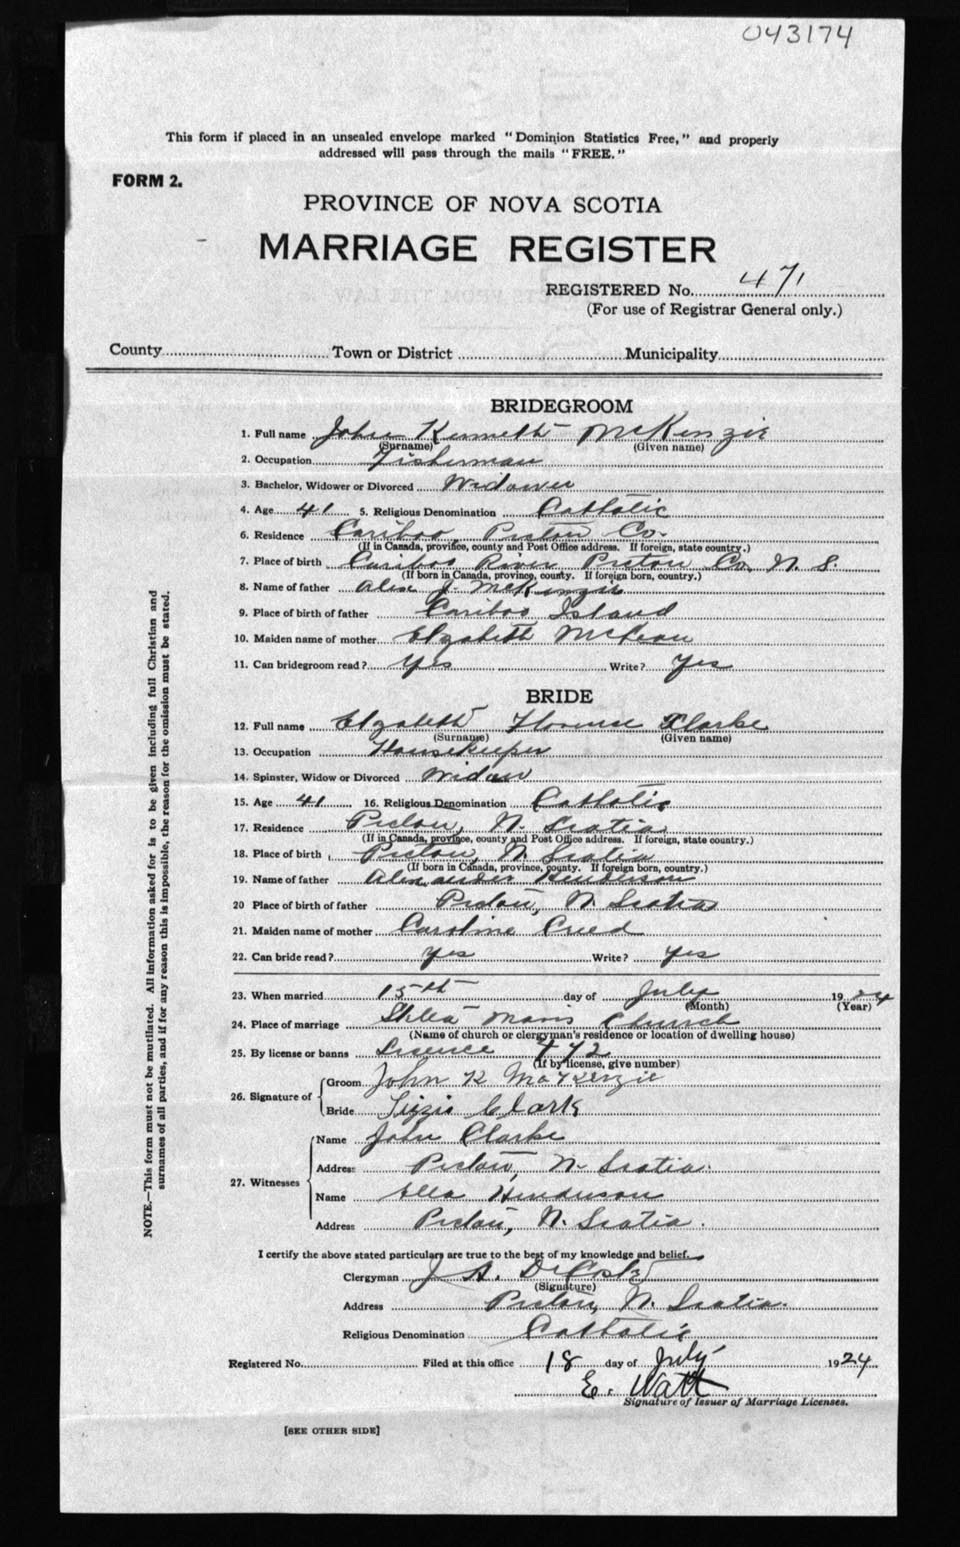 043174
This form if placed in an unsealed envelope marked "Dominion Statistics Free," and properly
addressed will pass through the mails "FREE."
FORM 2.
PROVINCE OF NOVA SCOTIA
MARRIAGE REGISTER
REGISTERED No. 471
(For use of Registrar General only.)
County Town or District Municipality
BRIDEGROOM
1. Full name John Kenneth McKenzie
(Surname) (Given name)
2. Occupation Fisherman
3. Bachelor, Widower or Divorced Widower
4. Age 41 5. Religious Denomination Catholic
6. Residence Cariboo Pictou Co.
(If in Canada, province, county and Post Office address. If foreign, state country.)
7. Place of birth Cariboo River Pictou Co. N. S.
(If born in Canada, province, county. If foreign born, country.)
8. Name of father Alex J. McKenzie
9. Place of birth of father Cariboo Island
10. Maiden name of mother Elzabeth McLean
11. Can bridegroom read? Yes Write? Yes
BRIDE
12. Full name Elzabeth Florence Clarke
(Surname) (Given name)
13. Occupation Housekeeper
14. Spinster, Widow or Divorced Widow
15. Age 41 16. Religious Denomination Catholic
17. Residence Pictou, N. Scotia
(If in Canada, province, county and Post Office address. If foreign, state country.)
18. Place of birth Pictou, N. Scotia
(If born in Canada, province, county. If foreign born, country.)
19. Name of father Alexander Henderson
20 Place of birth of father Pictou, N. Scotia
21. Maiden name of mother Caroline Creed
22. Can bride read? Yes Write? Yes
23. When married 15th day of July 1924
(Month) (Year)
24. Place of marriage Stella Maris Church
(Name of church or clergyman's residence or location of dwelling house)
25. By license or banns Lisence 472
(If by license, give number)
26. Signature of Groom John K MacKenzie
Bride Lizzie Clark
27. Witnesses Name John Clarke
Address Pictou, N. Scotia.
Name Ella Henderson
Address Pictou, N. Scotia.
I certify the above stated particulars are true to the best of my knowledge and belief.
Clergyman J. A. DeCoste
(Signature)
Address Pictou, N. Scotia.
Religious Denomination Catholic
Registered No. Filed at this office 18 day of July 1924
E. Watt
Signature of Issuer of Marriage Licenses.
[SEE OTHER SIDE]
NOTE.—This form must not be mutilated. All information asked for is to be given including full Christian and
surnames of all parties, and if for any reason this is impossible, the reason for the omission must be stated.